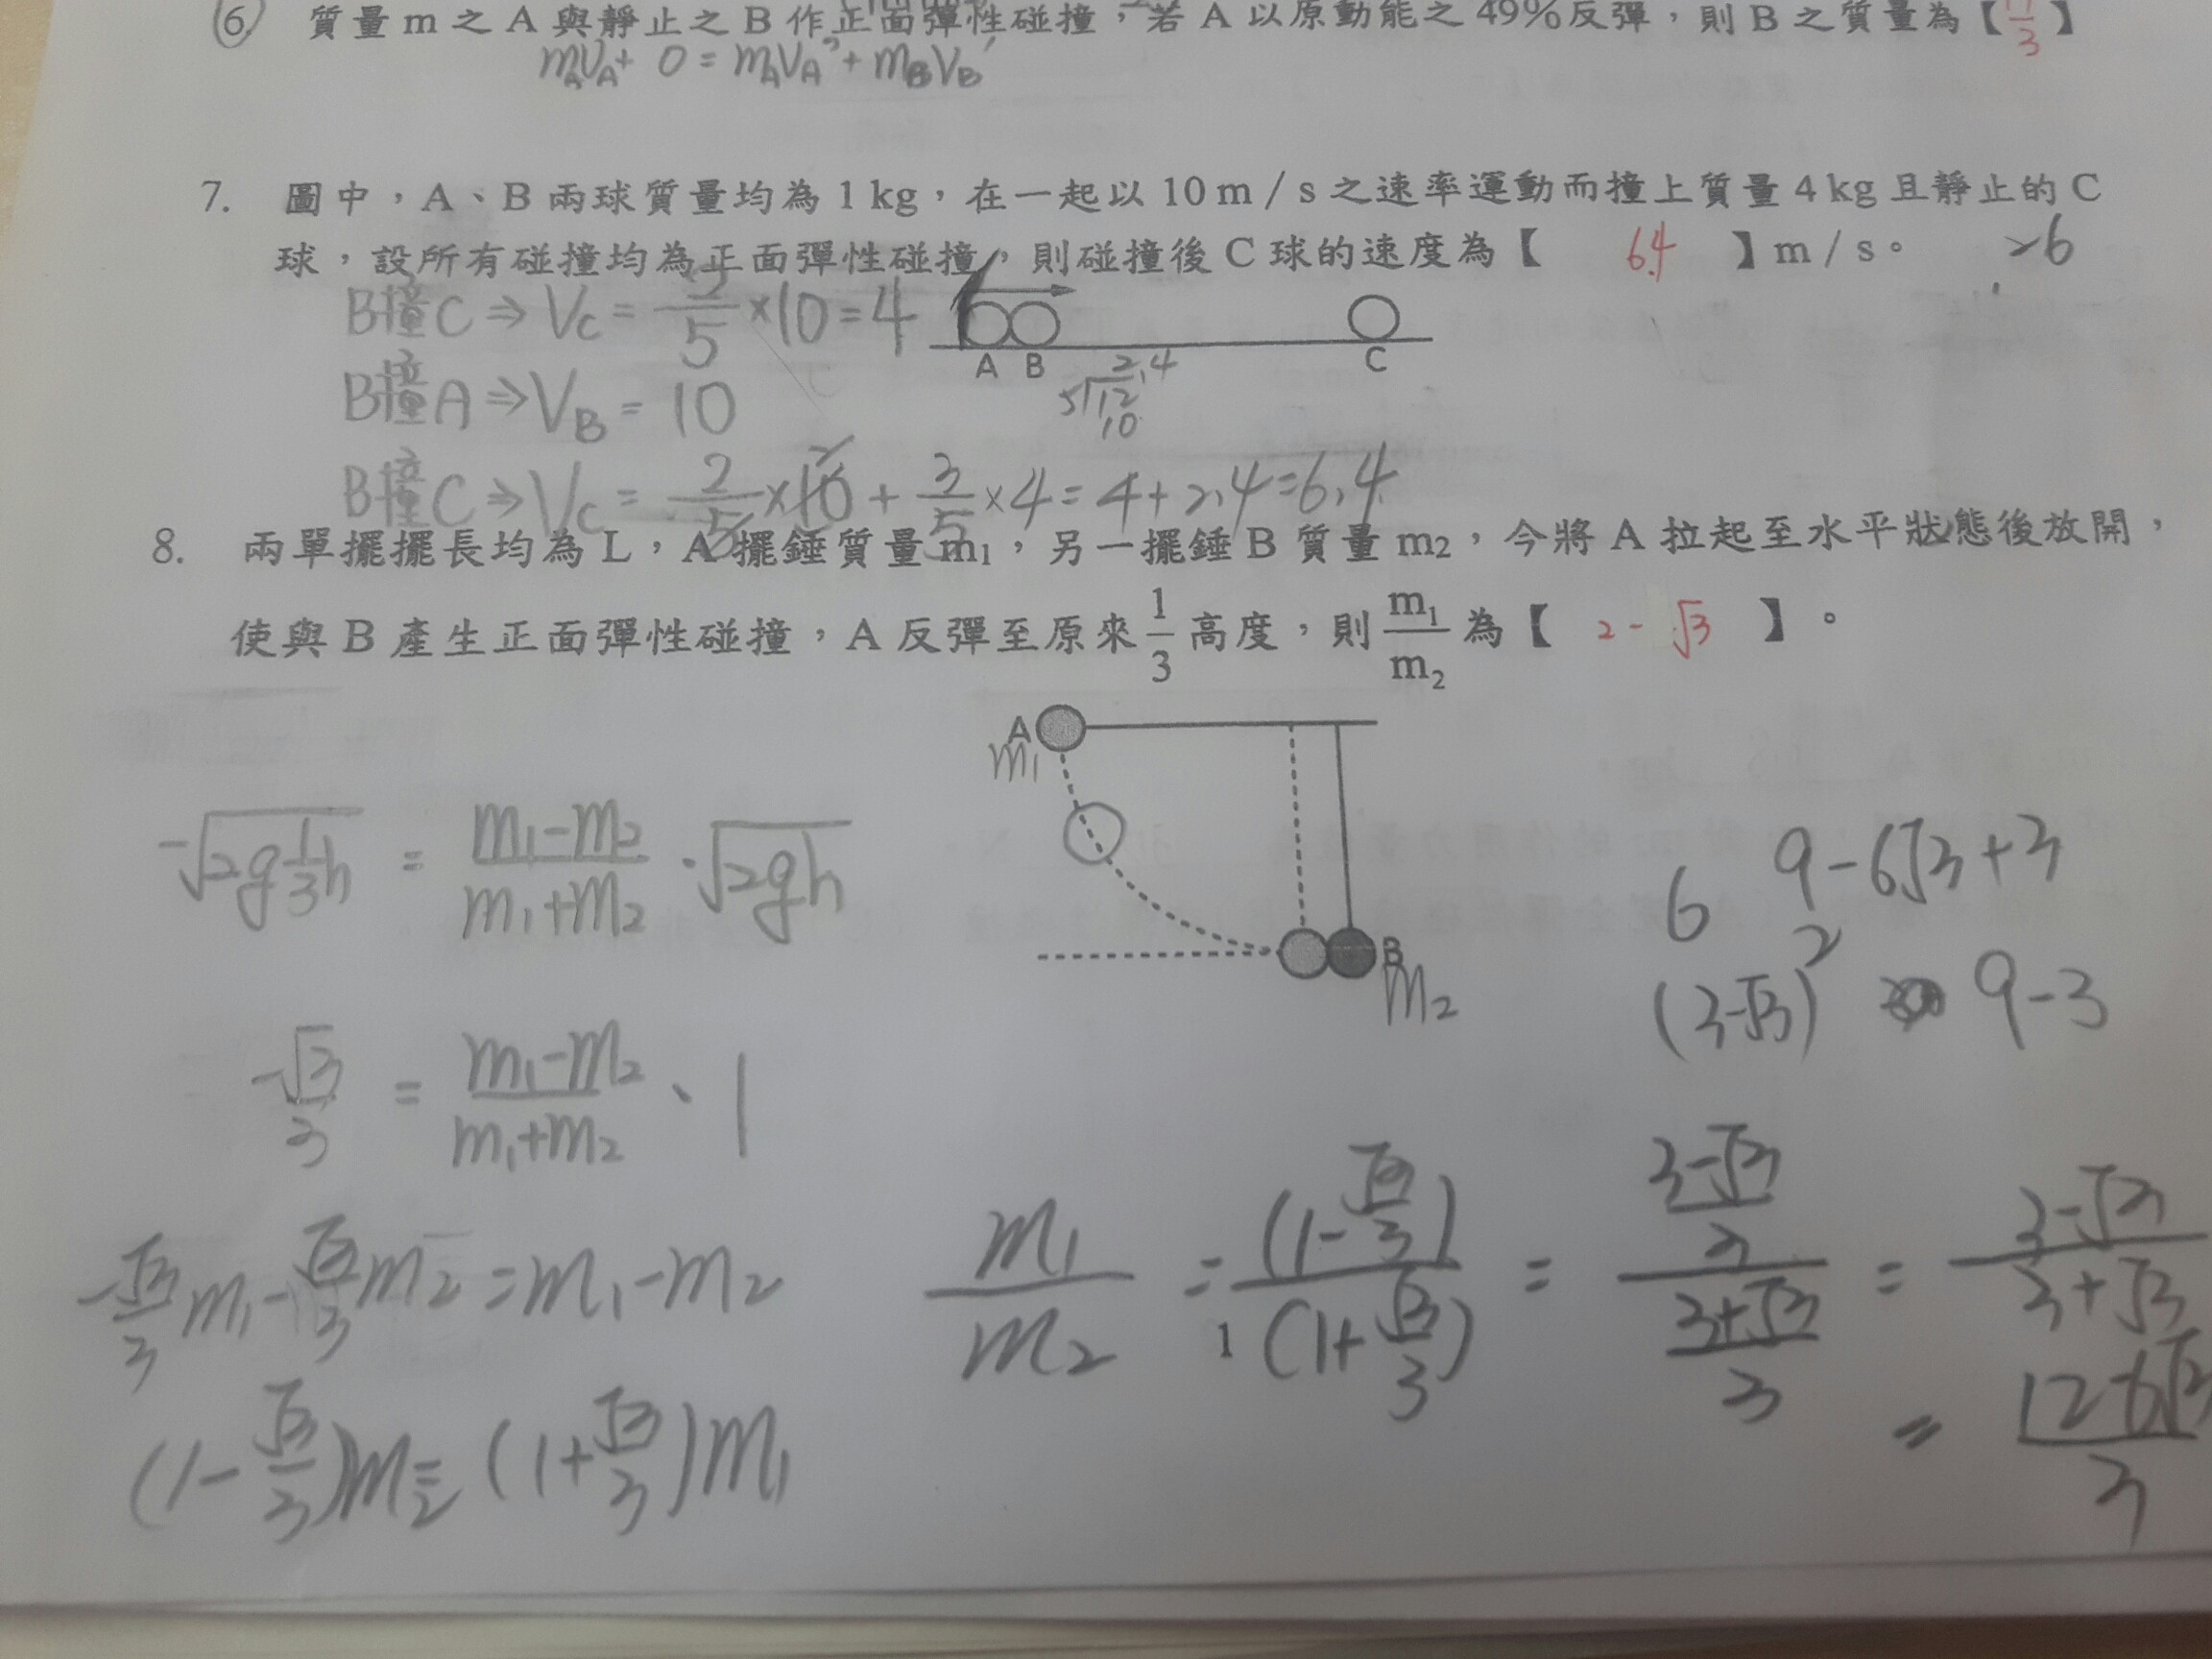 6. 質量 m 之 A 與靜止之 B 作正面彈性碰撞，若 A 以原動能之 49% 反彈，則 B 之質量為【 】
mAVA + 0 = mAVA' + mBVB'
7. 圖中，A、B 兩球質量均為 1 kg，在一起以 10 m / s 之速率運動而撞上質量 4 kg 且靜止的 C
球，設所有碰撞均為正面彈性碰撞，則碰撞後 C 球的速度為【 6.4 】m / s。
B撞C ⇒ Vc = 2/5 ×10 = 4
A B C
2.4
5 12
10
B撞A ⇒ VB = 10
B撞C ⇒ Vc = 2/5 ×10 + 3/5 ×4 = 4+2.4 = 6.4
8. 兩單擺擺長均為 L，A 擺錘質量 m1，另一擺錘 B 質量 m2，今將 A 拉起至水平狀態後放開，
使與 B 產生正面彈性碰撞，A 反彈至原來 1/3 高度，則 m1/m2 為【 2 - √3 】。
A
m1
B
m2
-√(2g 1/3 h) = (m1-m2)/(m1+m2) · √(2gh)
6 9-6√3+3
(3-√3)² 9-3
-√3/3 = (m1-m2)/(m1+m2) · 1
-√3/3 m1 - √3/3 m2 = m1-m2
(1-√3/3)m2 = (1+√3/3)m1
m1/m2 = (1-√3/3)/(1+√3/3) = ((3-√3)/3)/((3+√3)/3) = (3-√3)/(3+√3)